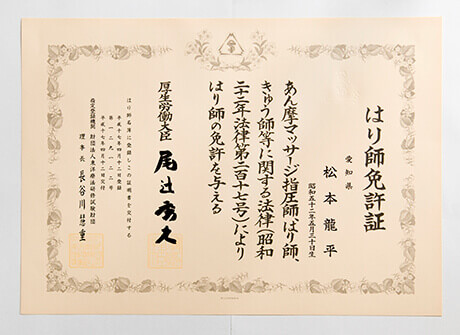 はり師免許証
愛知県
松本龍平
昭和五十二年五月三十日生
あん摩マッサージ指圧師、はり師、
きゅう師等に関する法律(昭和
二十二年法律第二百十七号)により
はり師の免許を与える
厚生労働大臣 尾辻秀久
はり師名簿に登録しこの証明書を交付する
平成十七年四月十二日登録
平成十七年四月十二日交付
指定登録機関 財団法人東洋療法研修試験財団
理事長 長谷川慧重